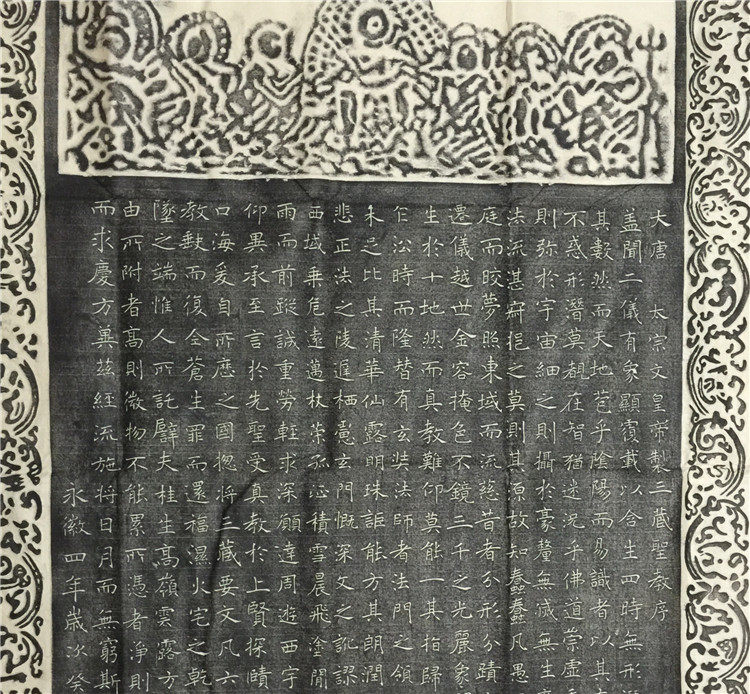 大唐　太宗文皇帝製三藏聖教序
蓋聞二儀有象顯覆載以含生四時無形
其數然而天地苞乎陰陽而易識者以其
不惑形潛莫覩在智猶迷況乎佛道崇虛
則弥於宇宙細之則攝於豪釐無滅無生
法流湛寂挹之莫測其源故知蠢蠢凡愚
庭而皎夢照東域而流慈昔者分形分蹟
遷儀越世金容掩色不鏡三千之光麗象
生於十地然而真教難仰莫能一其指歸
乍沿時而隆替有玄奘法師者法門之領
未足比其清華仙露明珠詎能方其朗潤
悲正法之陵遲栖慮玄門慨深文之訛謬
西域乗危遠邁杖策孤征積雪晨飛塗閒
雨而前蹤誠重勞輕求深願達周遊西宇
仰異承至言於先聖受真教於上賢探賾
口海爰自所歷之國揔將三藏要文凡六
教缺而復全蒼生罪而還福濕火宅之乾
墜之端惟人所託譬夫桂生高嶺雲露方
由所附者高則微物不能累所憑者淨則
而求慶方兾茲經流施將日月而無窮斯
永徽四年歲次癸